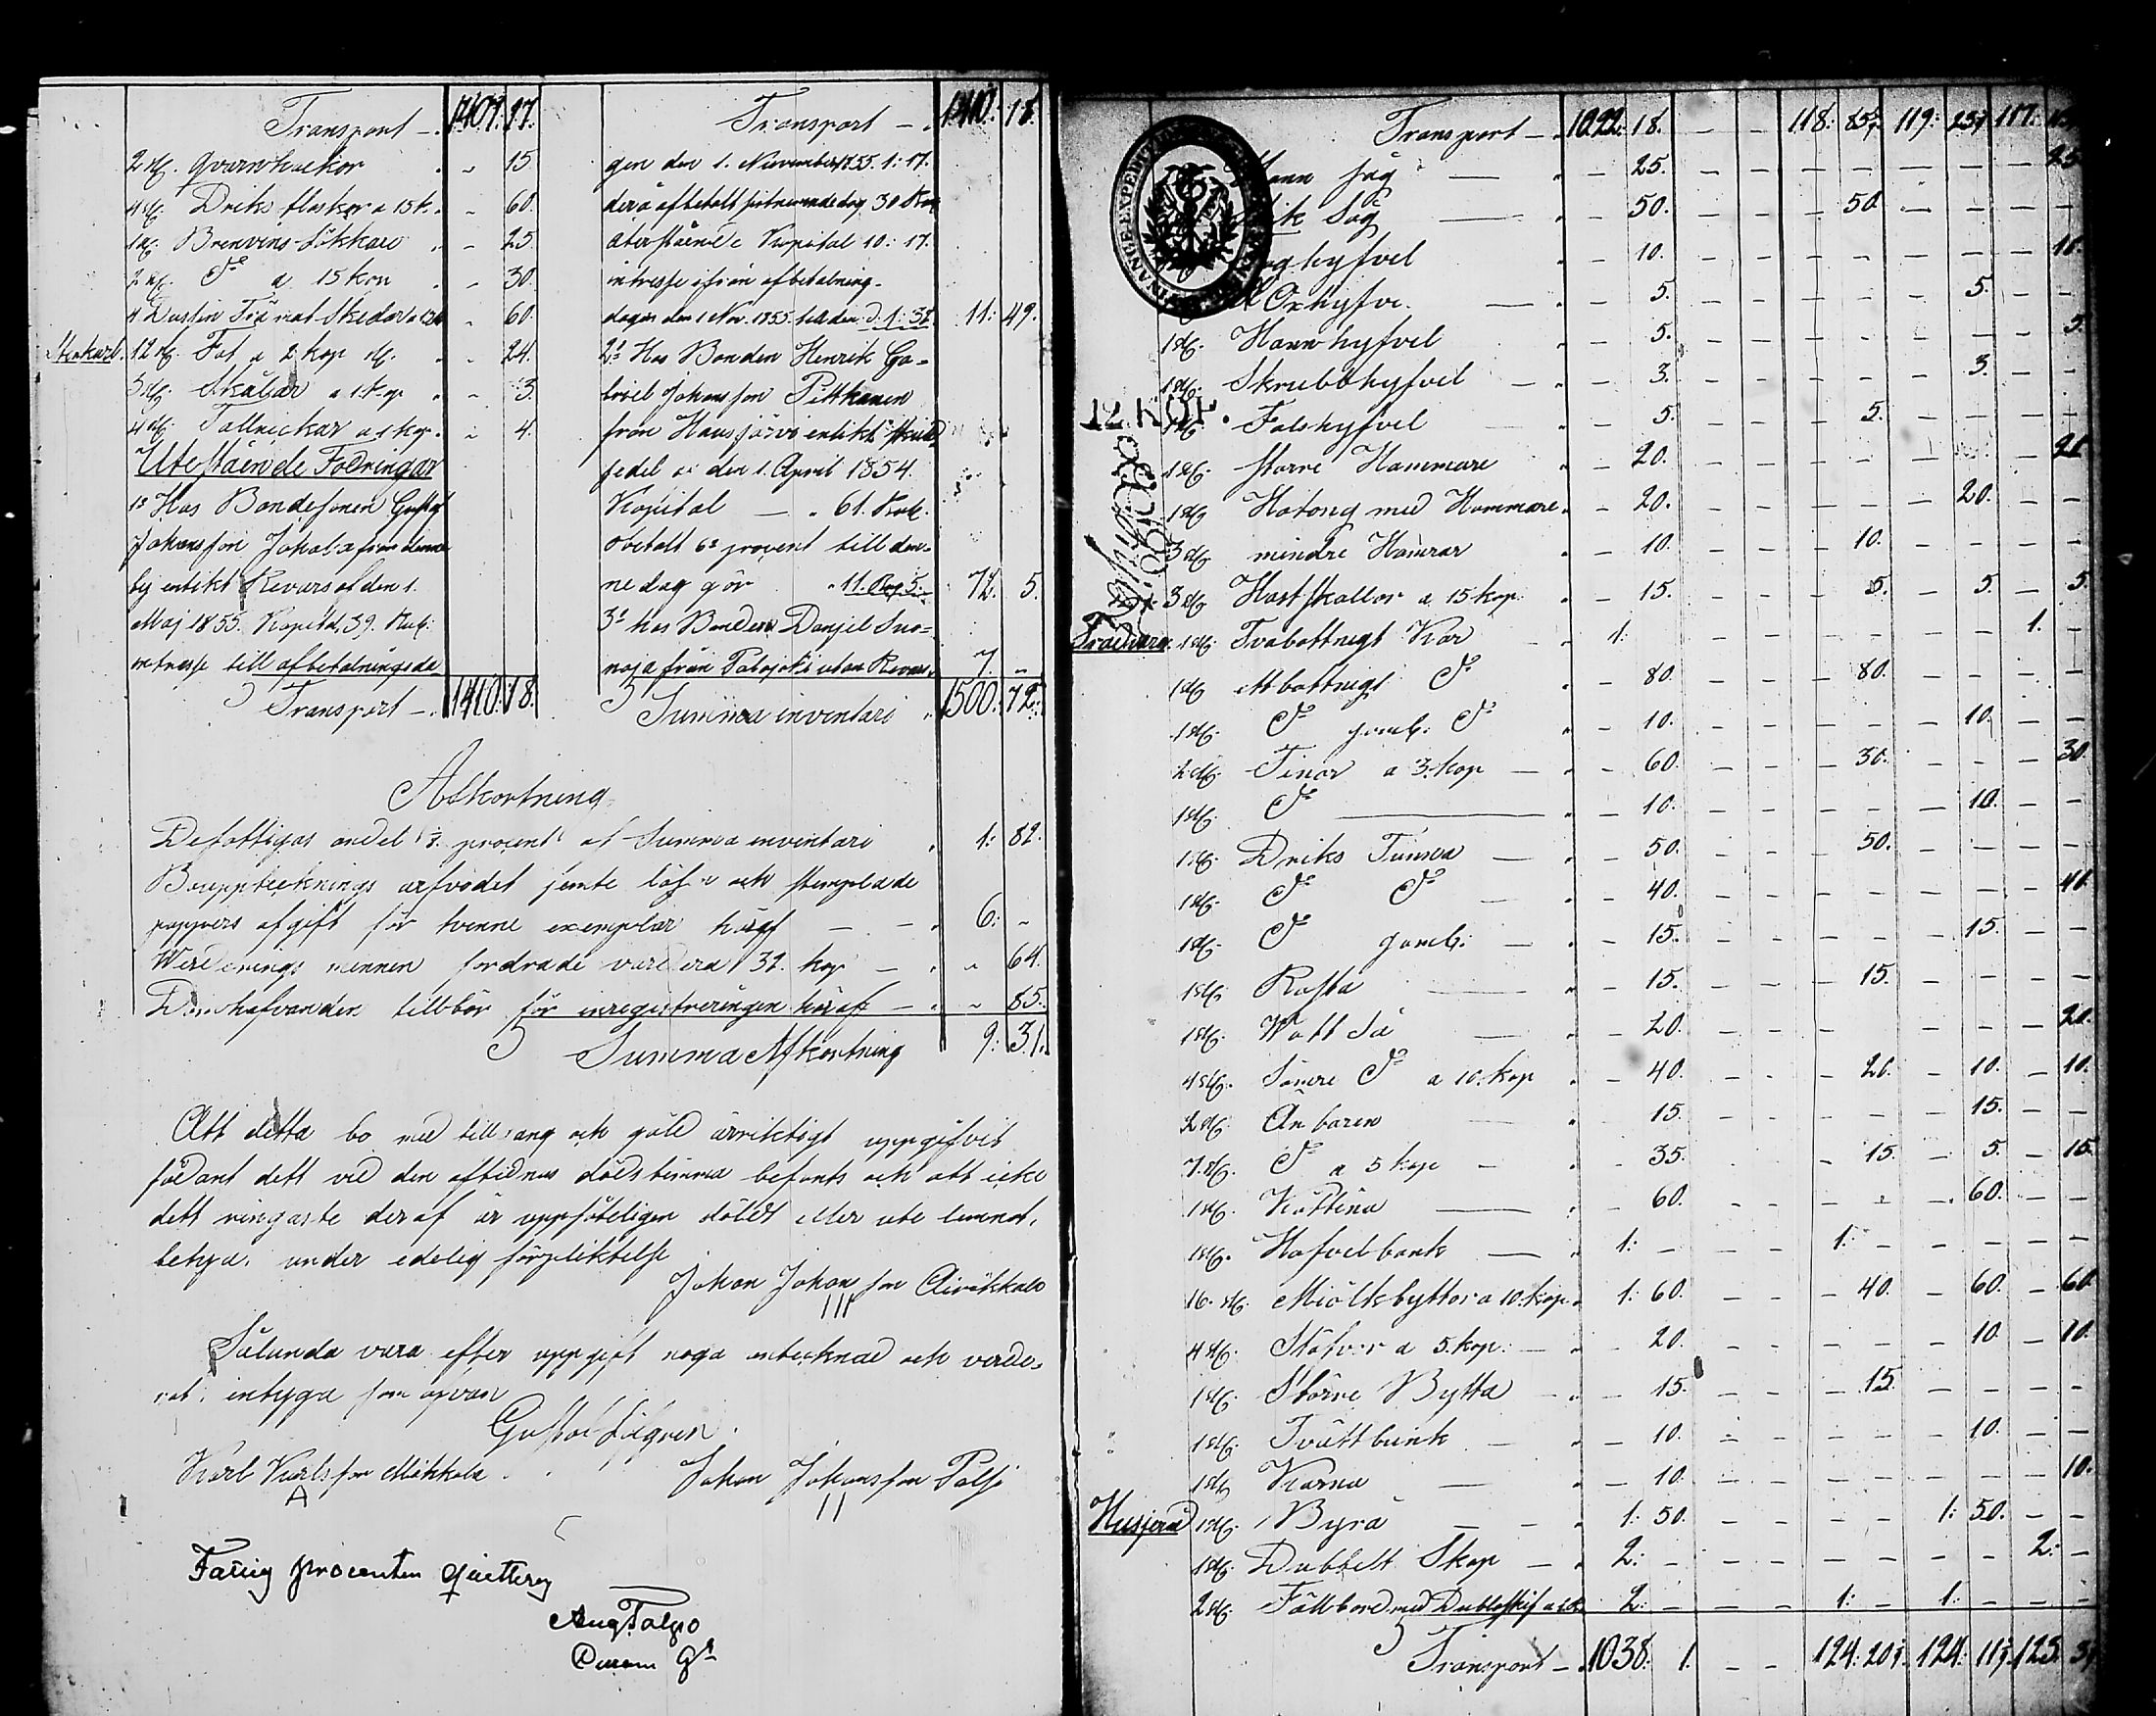 Transport — 1407. 97.
2 st. qvarnhackor " 15.
4 st. Driks flaskor a 15 k. " 60.
1 st. Brenvins Lökkare " 25.
2 st. D:o a 15 kop " 30.
4 Dussin Trä mat Skedar " 60.
12 st. Fat a 2 kop st. " 24.
3 st. Skålar a 1 kop " 3.
4 st. Tallrickar a 1 kop. " 4.
Utestående Fodringar
1:s Hos Bondesonen Gustaf
Johansson Jokela från denna
by enlikt Revers af den 1.
Maj 1855. Kapital 39. Rub.
intresse till afbetalningsda
Transport — 1410. 18.
Transport — 1410. 18.
gen den 1. November 1855. 1: 17.
derå afbetalt sistnemnde dag 30 Rub
återstående Kapital 10: 17.
intresse ifrån afbetalning-
dagen den 1 Nov. 1855 till den d. 1: 32. 11: 49.
2:s Hos Bonden Henrik Ga-
briel Johansson Pitkänen
från Hausjärvi enlikt skuld
sedel af den 1. April 1854.
Kapital — 61. Rub.
obetalt 6:s procent till den-
ne dag gör 11. Rub 5. 72. 5.
3:s hos Bonden Danjel Suo-
noja från Palojoki utan Revers 7. —
Summa inventari 1500. 72.
Afkortning
De fattigas andel 1/8 procent af Summa inventari 1: 82.
Bouppteknings arfvodet jemte lösen och stemplade
pappers afgift för tvenne exemplar häraf — 6: —
Werderings mennen fordrade vardera 32. kop — " 64.
Domhafvanden tillbör för inregistreringen häraf — " 85.
Summa Afkortning 9: 31.
Att detta bo med tillgang och gäld är riktigt uppgifvit
sådant dett vid den aflidnes dödstimma befants och att icke
dett ringaste deraf är uppsåteligen döldt eller ute lemnat,
betyga under edelig förpliktelse
Johan Johansson Airikkala
Sålunda vara efter uppgift noga antecknad och verde-
rat, intyga som ofvan
Gustaf Lågren.
Karl Karlsson Mikkola
Johan Johansson Paljo
Fattig procenten qvitteras
Aug Talgo
1022. 18. Transport — 118: 85 119: 23 117:
Hann såg — 25. 25.
Såg — 50. 50.
hyfvel 10. 10.
5. 5.
1 st. Hann hyfvel 5. 5.
1 st. Skrubbhyfvel — 3. 3.
12 KOP.
1 st. Falshyfvel 5. 5.
1 st. större Hammare 20. 20.
1 st. Hotong med Hammare 20. 20.
3 st. mindre Hamrar 10. 10.
3 st. Hastskallor a 15 kop. 15. 5. 5. 5.
Trädvara. 1 st. Tvåbottnigt Kar 1: 1. —
1 st. ettbottnigt D:o 80. 80.
1 st. D:o gamb. D:o 10. 10.
2 st. Tinor a 3. kop — 60. 30. 30.
1 st. D:o 10. 10.
1 st. Driks Tunna — 50. 50.
1 st. D:o D:o 40. 40.
1 st. D:o gamb: — 15. 15.
1 st. Rosta 15. 15.
1 st. Watt Så 20. 20.
4 st. Sämre D:o a 10. kop 40. 20. 10. 10.
2 st. Ämbaren 15. 15.
7 st. D:o a 5 kop — 35. 15. 5. 15.
1 st. Köttina — 60. 60.
1 st. Hofvelbank — 1: — 1:
16. st. Miölksbyttor a 10. kop. 1: 60. 40. 60. 60.
4 st. Stäfvor a 5. kop. — 20. 10. 10.
1 st. Större Bytta — 15. 15.
1 st. Tvättbunk — 10. 10.
1 st. Kärna — 10. 10.
Husgeråd 1 st. Byrå — 1: 50. 1: 50.
1 st. Dubbelt Skap — 2: — 2: —
2 st. Fällbord med 2: — 1: — 1: —
Transport — 1038: 1. 124: 20 124: 11 125: